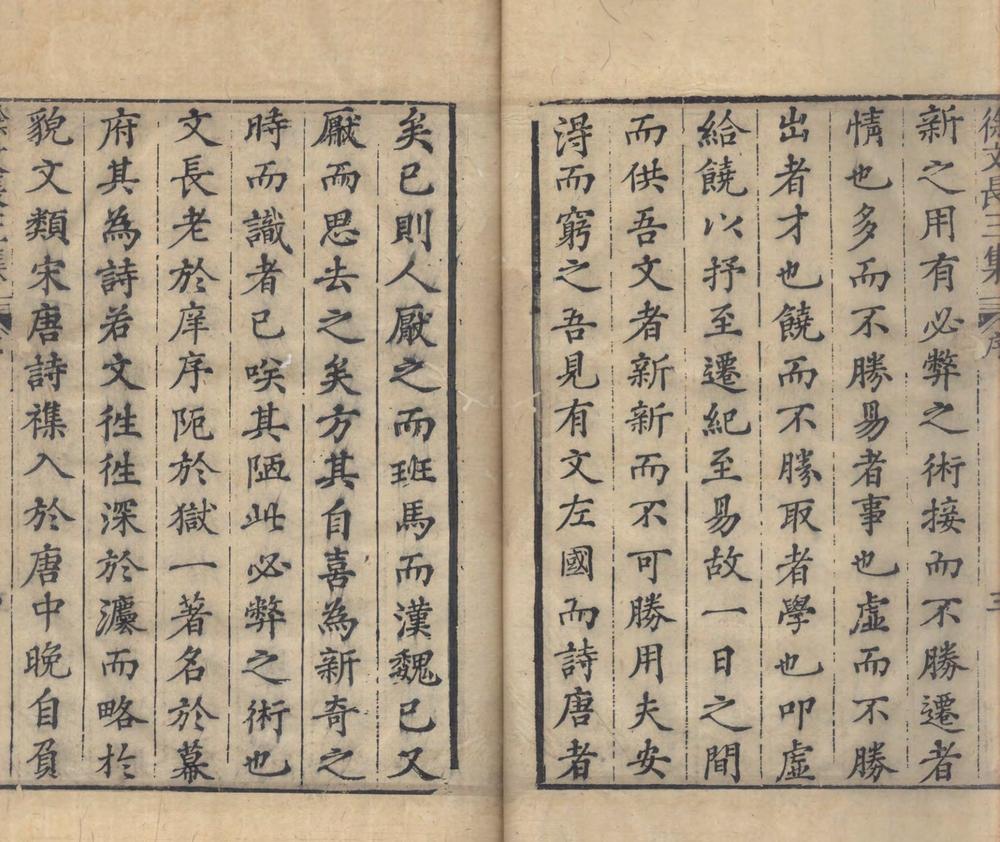 徐文長三集 序
三
新之用有必弊之術接而不勝遷者
情也多而不勝易者事也虛而不勝
出者才也饒而不勝取者學也叩虛
給饒以抒至遷紀至易故一日之間
而供吾文者新新而不可勝用夫安
淂而窮之吾見有文左國而詩唐者
矣已則人厭之而班馬而漢魏已又
厭而思去之矣方其自喜為新奇之
時而識者已唉其陋此必弊之術也
文長老於庠序阨於獄一著名於幕
府其為詩若文徃徃深於灋而略於
貌文類宋唐詩襍入於唐中晚自負